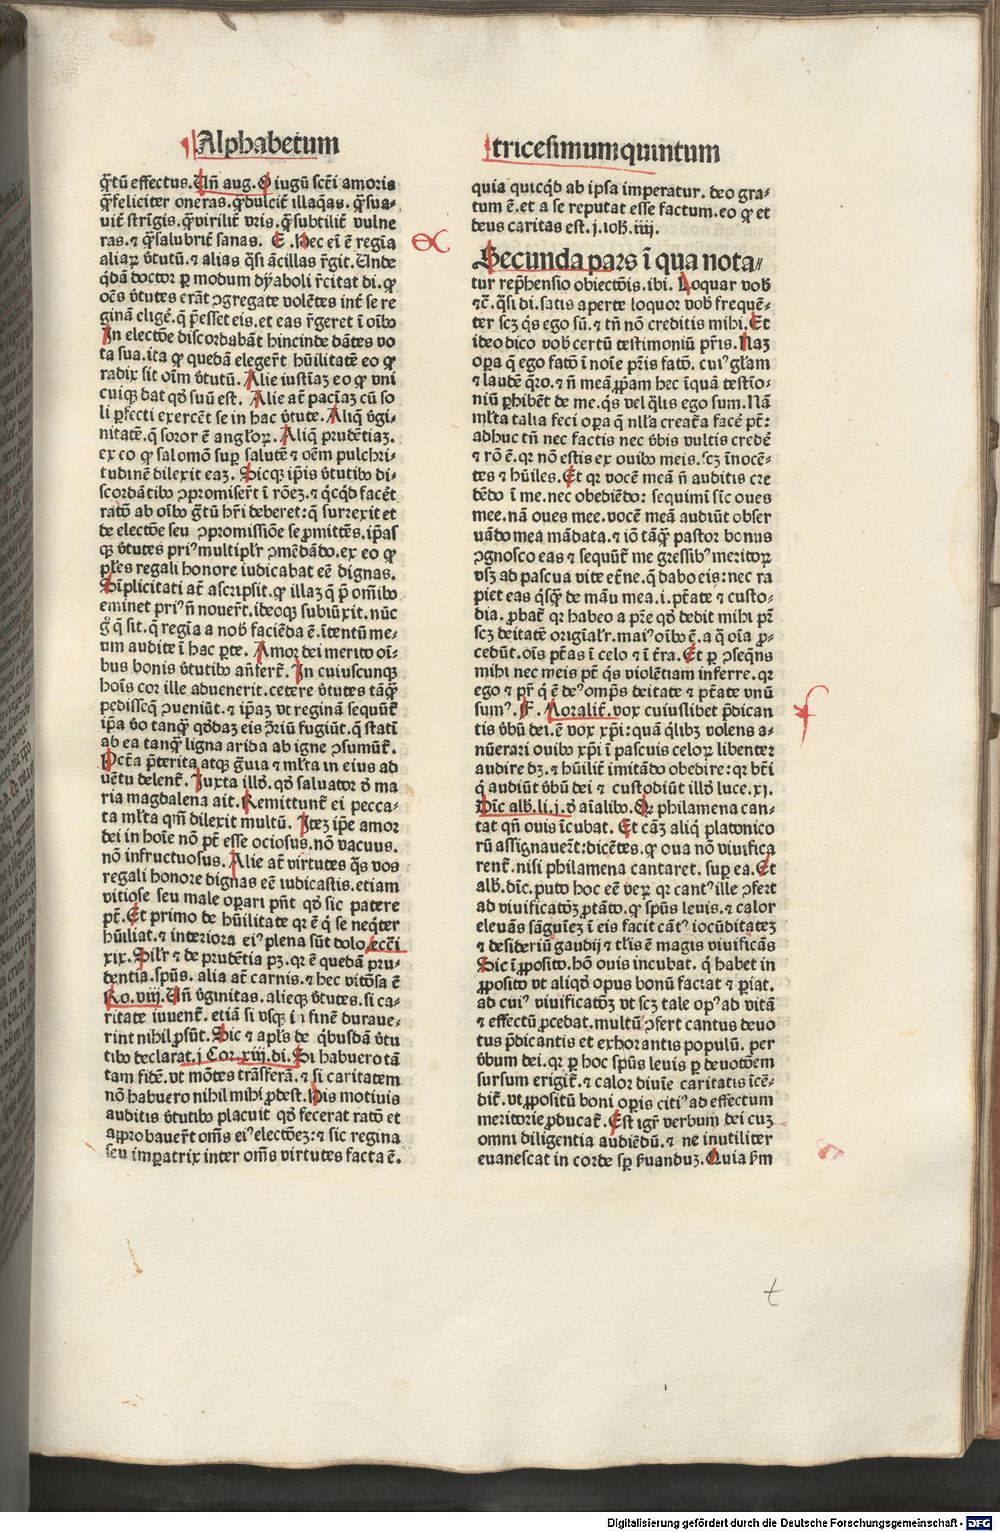 Alphabetum
tricesimumquintum
q̄tū effectus. Uñ aug. O iugū sct̄i amoris
q̄feliciter oneras. q̄dulcit̄ illaq̄as. q̄sua-
vit̄ str̄igis. q̄virilit̄ vris. q̄subtilit̄ vulne
ras. ⁊ q̄salubrit̄ sanas. E. Hec ei ē regīa
aliaꝝ v̄tutū. ⁊ alias q̄si ācillas r̄git. Unde
q̄dā doctor ꝑ modum dyaboli r̄citat di. ꝙ
oēs v̄tutes erāt ꝯgregate volētes int̄ se re
ginā eligē. q̄ p̄esset eis. et eas r̄geret ī oībꝰ
In electōe discordabāt hincinde dātes vo
ta sua. ita ꝙ quedā elegert̄ hūilitatē eo ꝙ
radix sit oīm v̄tutū. Alie iustiaꝫ eo ꝙ vni
cuiqꝫ dat qd̄ suū est. Alie at̄ paciaꝫ cū so
li ꝑfecti exercēt se in hac v̄tute. Aliq̄ v̄gi-
nitatē. q̄ soror ē angl̄oꝝ. Aliq̄ prudētiaꝫ.
ex eo ꝙ salomō suꝑ salutē ⁊ oēm pulchri-
tudinē dilexit eaꝫ. Sicqꝫ ip̄is v̄tutibꝰ di-
scordātibꝰ ꝯpromisert̄ ī rōeꝫ. ⁊ qꝫqd̄ facēt
ratō ab oībꝰ ḡtū hr̄i deberet: q̄ surrexit et
de electōe seu ꝯpromissiōe se ꝓmittēs. ip̄as
qꝫ v̄tutes priꝰ multipl̄r ꝯmēdādo. ex eo ꝙ
ples regali honore iudicabat eē dignas.
Simplicitati at̄ ascripsit. ꝙ illaꝫ q̄ p̄ om̄ibꝰ
eminet priꝰ ñ novert̄. ideoqꝫ subiūxit. nūc
g̊ q̄ sit. q̄ regīa a nob̄ faciēda ē. ītentū me-
um audite ī hac ꝑte. Amor dei merito oī-
bus bonis v̄tutibꝰ anfert̄. In cuiuscunqꝫ
hoīs cor ille advenerit. cetere v̄tutes tāq̄
pedisseq̄ ꝯveniūt. ⁊ ip̄aꝫ vt reginā sequūt̄
ip̄a v̊o tanq̄ qd̄daꝫ eis ꝯriū fugiūt. q̄ statī
ab ea tanq̄ ligna arida ab igne ꝯsumūt̄.
Pctā p̄terita atqꝫ gͣuia ⁊ ml̄ta in eius ad
uētu delent̄. Iuxta illd̄. qd̄ salvator d̄ ma
ria magdalena ait. Remittunt̄ ei pecca-
ta ml̄ta qm̄ dilexit multū. Iteꝫ ip̄e amor
dei in hoīe nō pt̄ esse ociosus. nō vacuus.
nō infructuosus. Alie at̄ virtutes q̄s vos
regali honore dignas eē iudicastis. etiam
vitiose seu male oꝑari pn̄t qd̄ sic patere
pt̄. Et primo de hūilitate qꝛ ē q̄ se neqͥter
hūiliat. ⁊ interiora eiꝰ plena sūt dolo. eccī
xix. Silr̄ ⁊ de prudētia pꝫ. qꝛ ē quedā pru-
dentia. spūs. alia at̄ carnis. ⁊ hec vitōsa ē
Ro. viij. Uñ v̄ginitas. alieqꝫ v̄tutes. si ca-
ritate iuvent̄. etiā si vsqꝫ in finē durave-
rint nihil ꝓsūt. Sic ⁊ apl̄s de q̄busdā v̄tu
tibꝰ declarat. j Cor. xiij. di. Si habuero tā
tam fidē. vt mōtes trāsferā. ⁊ si caritatem
nō habuero nihil mihi ꝓdest. His motivis
auditis v̄tutibꝰ placuit qd̄ fecerat ratō et
approbavert̄ om̄s eiꝰ electōeꝫ: ⁊ sic regina
seu imꝑatrix inter om̄s virtutes facta ē.
quia quicqd̄ ab ipsa imperatur. deo gra-
tum ē. et a se reputat esse factum. eo ꝙ et
deus caritas est. j. ioh̄. iiij.
Secunda pars ī qua nota-
tur rep̄hensio obiectōis. ibi. Loquar vob̄
⁊c̄. q̄si di. satis aperte loquor vob̄ frequē-
ter scꝫ q̄s ego sū. ⁊ tn̄ nō creditis mihi. Et
ideo dico vob̄ certū testimoniū pr̄is. Naꝫ
oꝑa q̄ ego fatō ī noīe pr̄is fatō. cuiꝰ gl̄am
⁊ laudē q̄ro. ⁊ ñ meā ꝓpam hec īquā testīo-
niū ꝑhibēt de me. q̄s vel q̄lis ego sum. Nā
ml̄ta talia feci oꝑa q̄ nll̄a creat̄a facē pt̄:
adhuc tn̄ nec factis nec v̄bis vultis credē
⁊ rō ē. qꝛ nō estis ex ovibꝰ meis. scꝫ īnocē-
tes ⁊ hūiles. Et qꝛ vocē meā ñ auditis cre
dēdo ī me. nec obediēdo: sequimī sic oues
mee. nā oues mee. vocē meā audiūt obser
uādo mea mādata. ⁊ iō tāq̄ pastor bonus
ꝯgnosco eas ⁊ sequūt̄ me gressibꝰ meritoꝝ
vsqꝫ ad pascua vite et̄ne. q̄ dabo eis: nec ra
piet eas q̄sq̄ de māu mea. i. pt̄ate ⁊ custo-
dia. ꝓbat̄ qꝛ habeo a pr̄e qd̄ dedit mihi pr̄
scꝫ deitatē origīal̄r. maiꝰ oībꝰ ē. a q̄ oīa ꝓ-
cedūt. oīs pt̄as ī celo ⁊ ī t̄ra. Et ꝑ ꝯseqn̄s
mihi nec meis pt̄ q̄s violētiam inferre. qꝛ
ego ⁊ pr̄ q̄ ē deꝰ omp̄s deitate ⁊ pt̄ate vnū
sumꝰ. F. Moralit̄. vox cuiuslibet p̄dican
tis v̄bū dei. ē vox xp̄i: quā q̄libꝫ volens a-
nūerari ovibꝰ xp̄i ī pascuis celoꝝ libenter
audire dꝫ. ⁊ hūilit̄ imitādo obedire: qꝛ bt̄i
q̄ audiūt v̄bū dei ⁊ custodiūt illd̄ luce. xj.
Dīc alb̄. li. j. d̄ aīalibꝰ. Qꝛ philamena can-
tat qn̄ ovis īcubat. Et cāꝫ aliq̄ platonico
rū assignavert̄: dicētes. ꝙ ova nō viuifica
rent̄. nisi philamena cantaret. suꝑ ea. Et
alb̄. dīc. puto hoc eē veꝝ qꝛ cantꝰ ille ꝯfert
ad viuificatōꝫ ꝓtāto. ꝙ spūs levis. ⁊ calor
elevās sāguieꝫ ī eis facit cātꝰ iocūditateꝫ
⁊ desideriū gaudij ⁊ tl̄is ē magis viuificās
Sic ī ꝓposito. hō ouis incubat. q̄ habet in
ꝓposito vt aliqd̄ opus bonū faciat ⁊ ꝑiat.
ad cuiꝰ viuificatōꝫ vt scꝫ tale opꝰ ad vitā
⁊ effectū ꝓcedat. multū ꝯfert cantus devo
tus p̄dicantis et exhorantis populū. per
v̄bum dei. qꝛ ꝑ hoc spūs levis ꝑ devotōem
sursum erigit̄. ⁊ calor divīe caritatis īcē-
dit̄. vt ꝓpositū boni oꝑis citiꝰ ad effectum
meritorie ꝓducat̄. Est igr̄ verbum dei cuꝫ
omni diligentia audiēdū. ⁊ ne inutiliter
evanescat in corde sꝑ s̄vanduꝫ. Quia s̄m
f
t
Digitalisierung gefördert durch die Deutsche Forschungsgemeinschaft - DFG